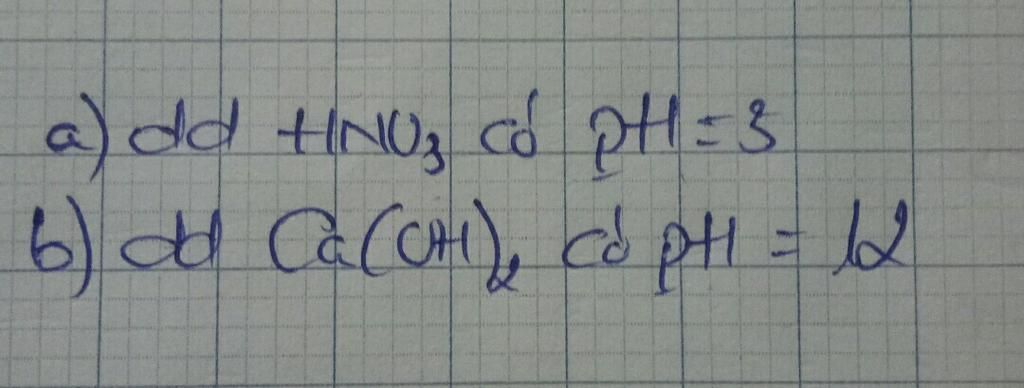 a) dd HNO₃ có pH = 3
b) dd Ca(OH)₂ có pH = 12